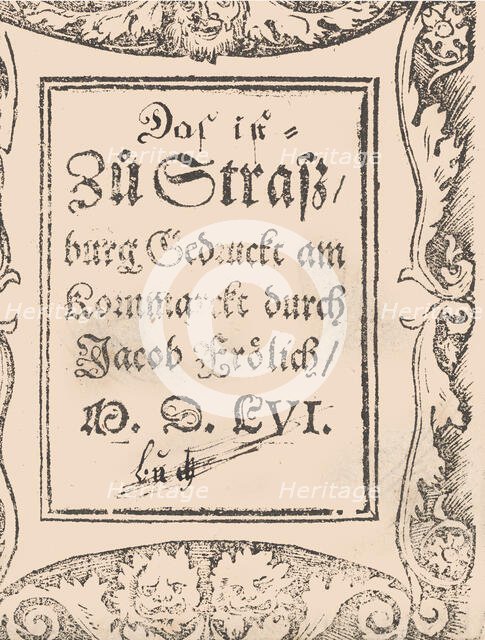 Das ist
Zů Straß/
burg Gedruckt am
Kornmarckt durch
Jacob Frölich/
M. D. LVI.
Buch
Heritage Heritage
Heritage Heritage
Heritage Heritage
Heritage Heritage